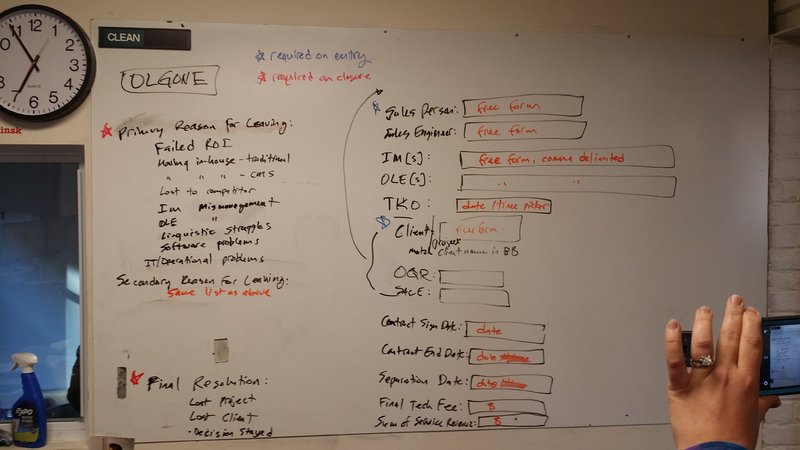 CLEAN
OLGONE
☆ required on entry
☆ required on closure
☆ Primary Reason for Leaving:
Failed ROI
Moving in-house - traditional
" " " - CMS
Lost to competitor
Im mismanagement
OLE "
Linguistic Struggles
Software problems
IT/Operational problems
Secondary Reason for Leaving:
Same list as above
☆ Final Resolution:
Lost Project
Lost Client
- Decision Stayed
☆ Sales Person: free form
Sales Engineer: free form
IM[s]: free form, comma delimited
OLE[s]: " "
TKO: date/time picker
☆ Client/project: Free form
match client name in BB
OQR:
SALE:
Contract Sign Date: date
Contract End Date: date
Separation Date: date
Final Tech Fee: $
Sum of Service Revenue: $
11 12 1 2 3 4 5 6 7
QUARTZ
insk
EXPO